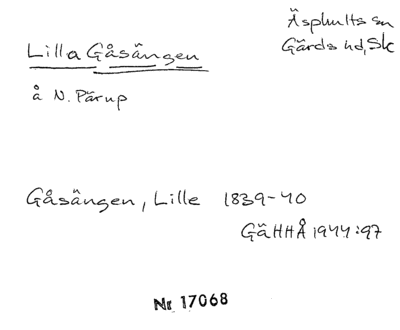 Lilla Gåsängen
Äsphults sn
Gärds hd, Sk
å N. Pärup
Gåsängen, Lille 1839-40
GäHHÅ 1944:97
Nr 17068